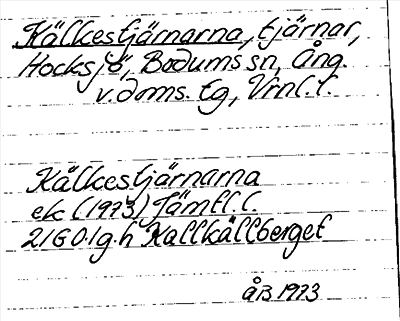 Kälkestjärnarna, tjärnar,
Hocksjö, Bodums sn, Ång.
v.doms. tg, Vrnl. l.
Kälkestjärnarna
ek (1973) Jämtl l.
21G 0-1g.h Kallkällberget
åB 1973